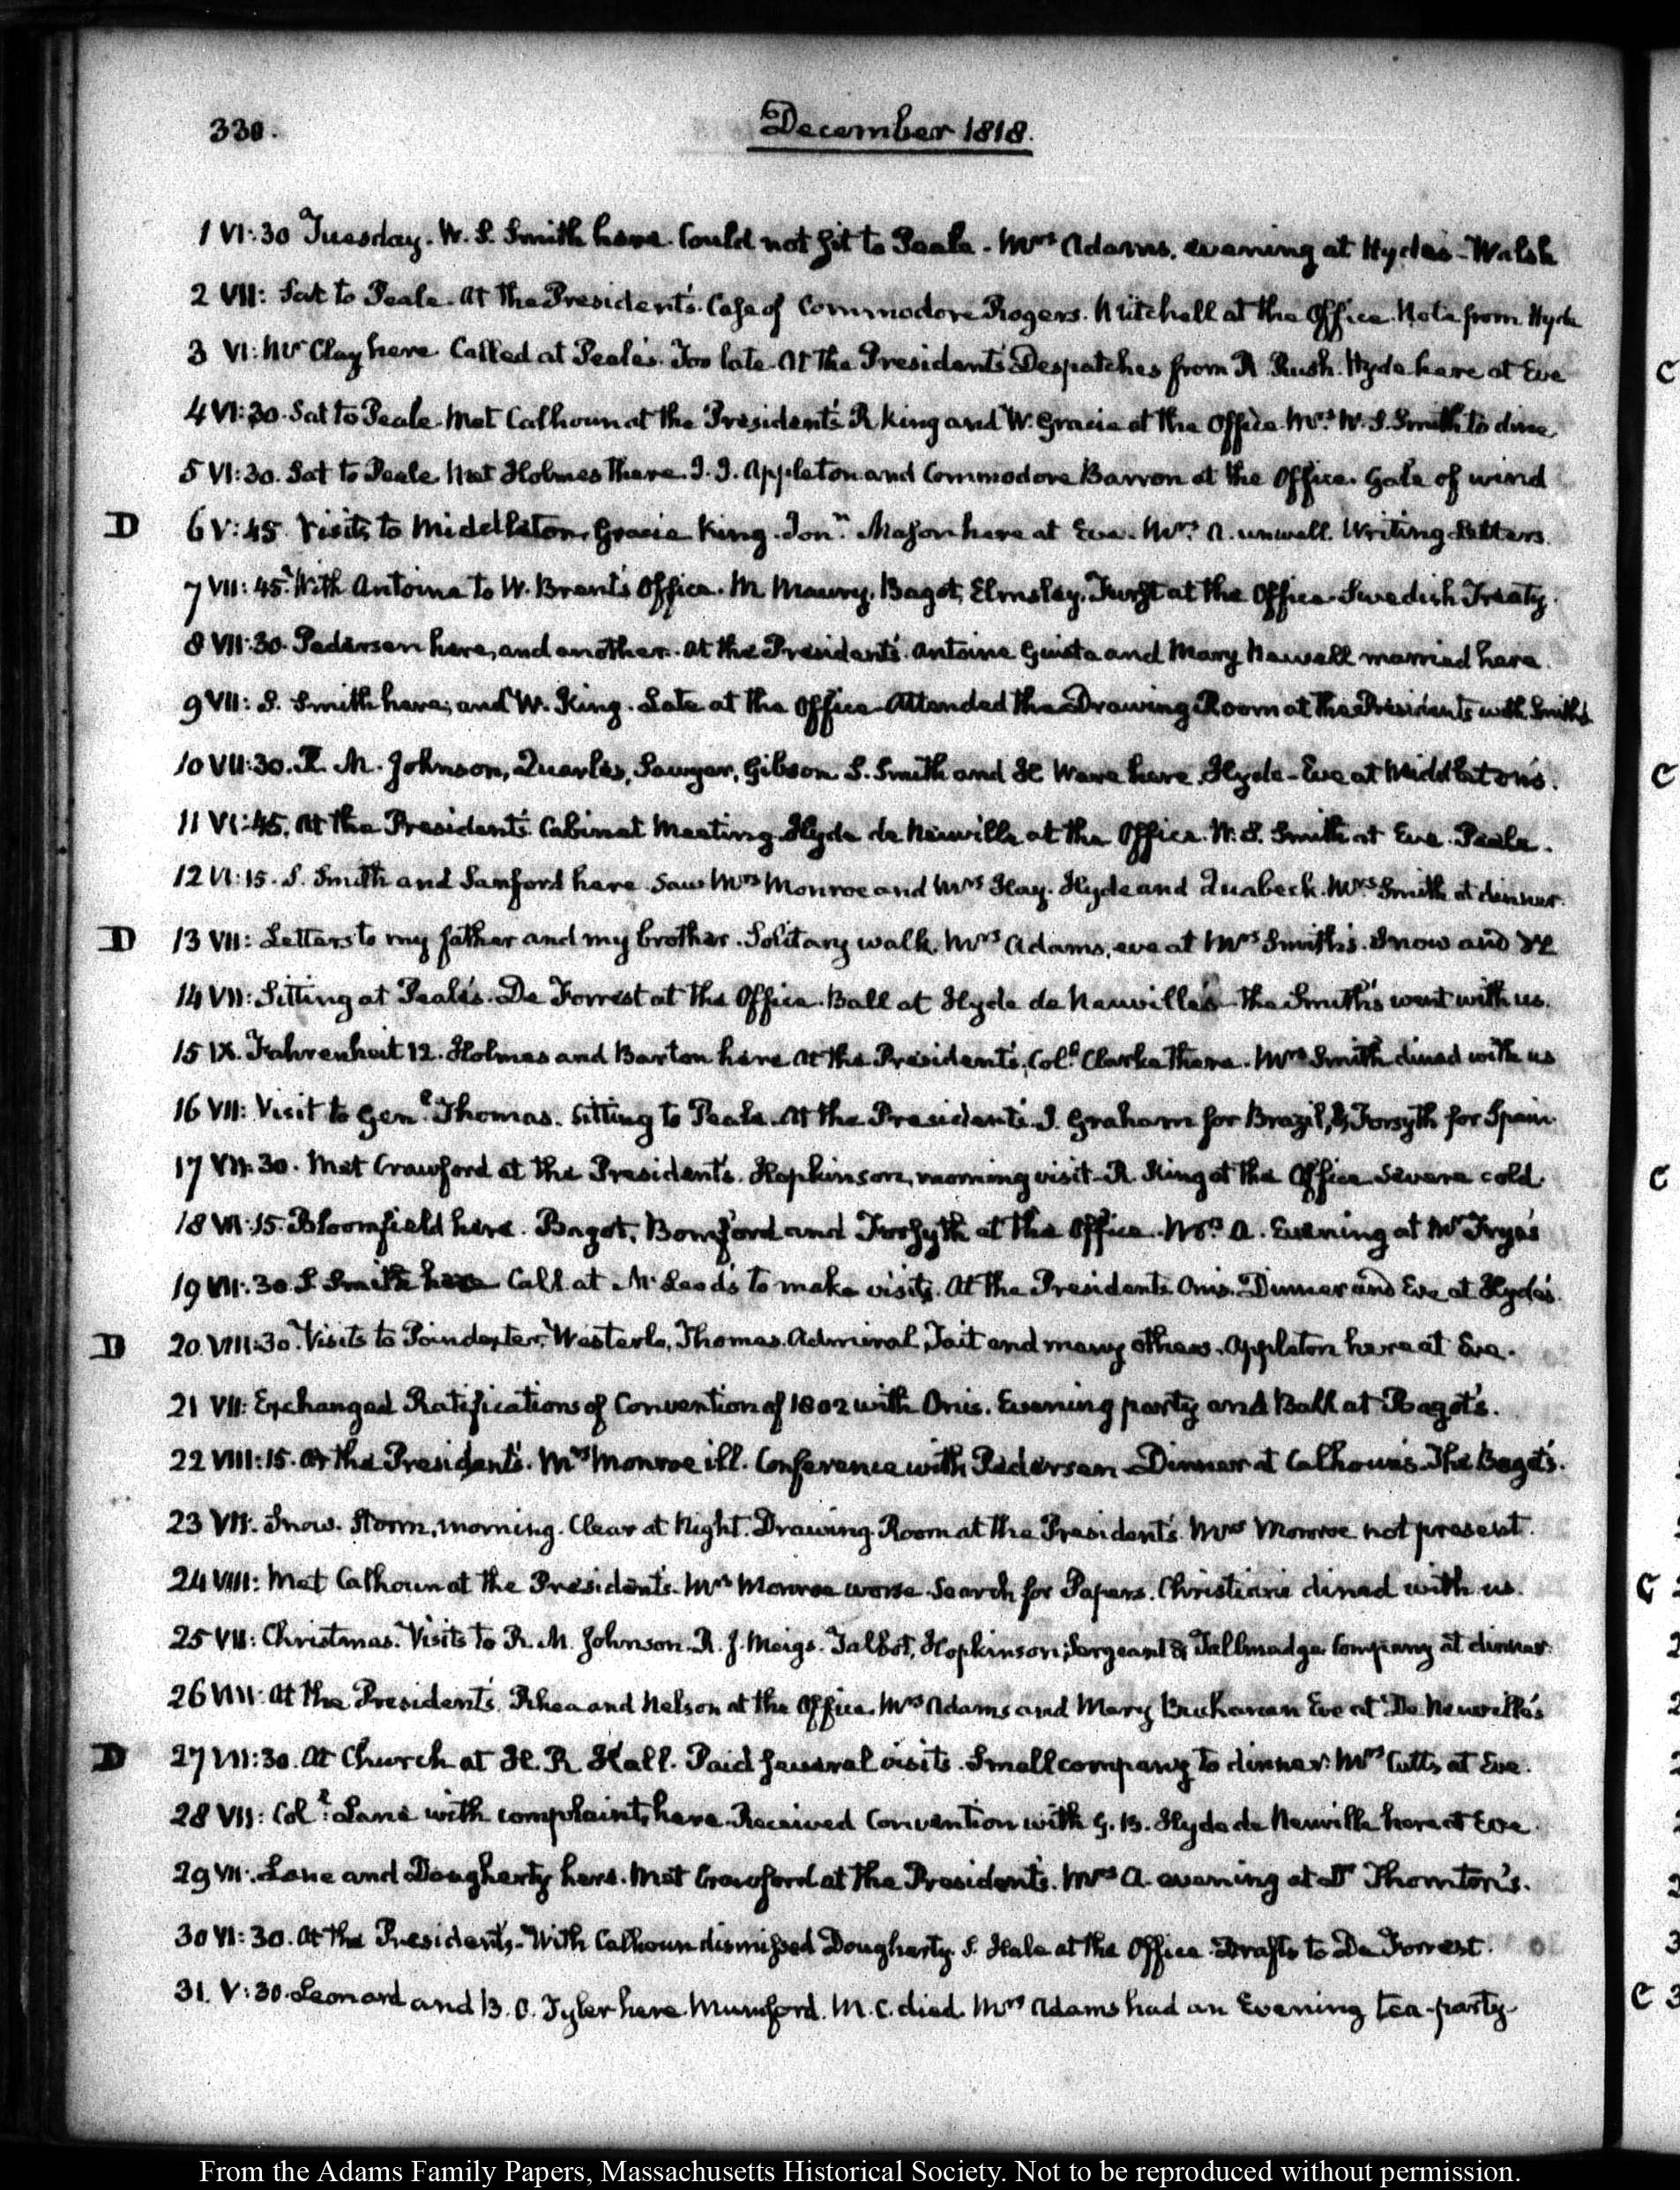 330.
December 1818.
1 VI:30 Tuesday. W. S. Smith here. Could not sit to Peale. Mrs Adams, evening at Hyde's - Walsh
2 VII: Sat to Peale. At the President's. Case of Commodore Rogers. Mitchell at the Office. Note from Hyde
3 VI: Mr Clay here. Called at Peale's. Too late. At the President's Despatches from R Rush. Hyde here at Eve
4 VI:30. Sat to Peale. Met Calhoun at the President's R King and W. Gracie at the Office Mrs W. S. Smith to dine
5 VI:30. Sat to Peale. Met Holmes there. J. J. Appleton and Commodore Barron at the Office. Gale of wind
D 6 V:45. Visits to Middleton, Gracie King. Jonn. Mason here at Eve. Mrs A. unwell. Writing Letters.
7 VII:45. With Antoine to W. Brent's Office. M Maury, Bagot, Elmsley, Furst at the Office. Swedish Treaty.
8 VII:30. Pedersen here, and another. At the President's. Antoine Guista and Mary Newell married here.
9 VII: S. Smith here, and W. King. Late at the Office. Attended the Drawing Room at the Presidents with Smiths
10 VII:30. R. M. Johnson, Quarles, Sawyer, Gibson. S. Smith and H Ware here. Hyde - Eve at Middleton's.
11 VI:45. At the President's Cabinet Meeting. Hyde de Neuville at the Office. W. S. Smith at Eve. Peale.
12 VI:15. S. Smith and Sanford here. Saw Mrs Monroe and Mrs Hay. Hyde and Quabeck. Mrs Smith at dinner.
D 13 VII: Letters to my father and my brother. Solitary walk. Mrs Adams, eve at Mrs Smith's. Snow and
14 VII: Sitting at Peale's. De Forrest at the Office. Ball at Hyde de Neuville's - The Smith's went with us.
15 IX. Fahrenheit 12. Holmes and Barton here. At the President's, Coll. Clarke there. Mrs Smith dined with us
16 VII: Visit to Genl. Thomas. Sitting to Peale. At the President's. J. Graham for Brazil, & Forsyth for Spain
17 VII:30. Met Crawford at the President's. Hopkinson, morning visit - R King at the Office. Severe cold.
18 VII:15. Bloomfield here. Bagot, Bomford and Forsyth at the Office. Mrs A. Evening at Mr Frye's
19 VII:30. S Smith here Call at McLeod's to make visits. At the President's Onis. Dinner and Eve at Hyde's.
D 20. VIII:30. Visits to Poindexter, Westerlo, Thomas, Admiral, Tait and many others. Appleton here at Eve.
21 VII: Exchanged Ratifications of Convention of 1802 with Onis. Evening party and Ball at Bagot's.
22 VIII:15. At the President's. Mrs Monroe ill. Conference with Pedersen. Dinner at Calhoun's. The Bagot's.
23 VII. Snow. Storm, morning. Clear at Night. Drawing Room at the President's. Mrs Monroe not present.
24 VIII: Met Calhoun at the President's. Mrs Monroe worse. Search for Papers. Christiani dined with us.
25 VII: Christmas. Visits to R. M. Johnson. R. J. Meigs. Talbot, Hopkinson, Sergeant & Tallmadge. Company at dinner.
26 VIII. At the President's. Rhea and Nelson at the Office. Mrs Adams and Mary Buchanan Eve at De Neuville's
D 27 VII:30. At Church at H. R Hall. Paid several visits. Small company to dinner. Mrs Cutts at Eve.
28 VII: Coll. Lane with complaints, here. Received Convention with G. B. Hyde de Neuville here at Eve.
29 VII. Lane and Dougherty here. Met Crawford at the President's. Mrs A. evening at Dr Thornton's.
30 VI:30. At the President's. With Calhoun dismissed Dougherty. S. Hale at the Office. Drafts to De Forrest.
31. V:30. Leonard and B. O. Tyler here. Mumford. M. C. died. Mrs Adams had an Evening tea-party.
From the Adams Family Papers, Massachusetts Historical Society. Not to be reproduced without permission.